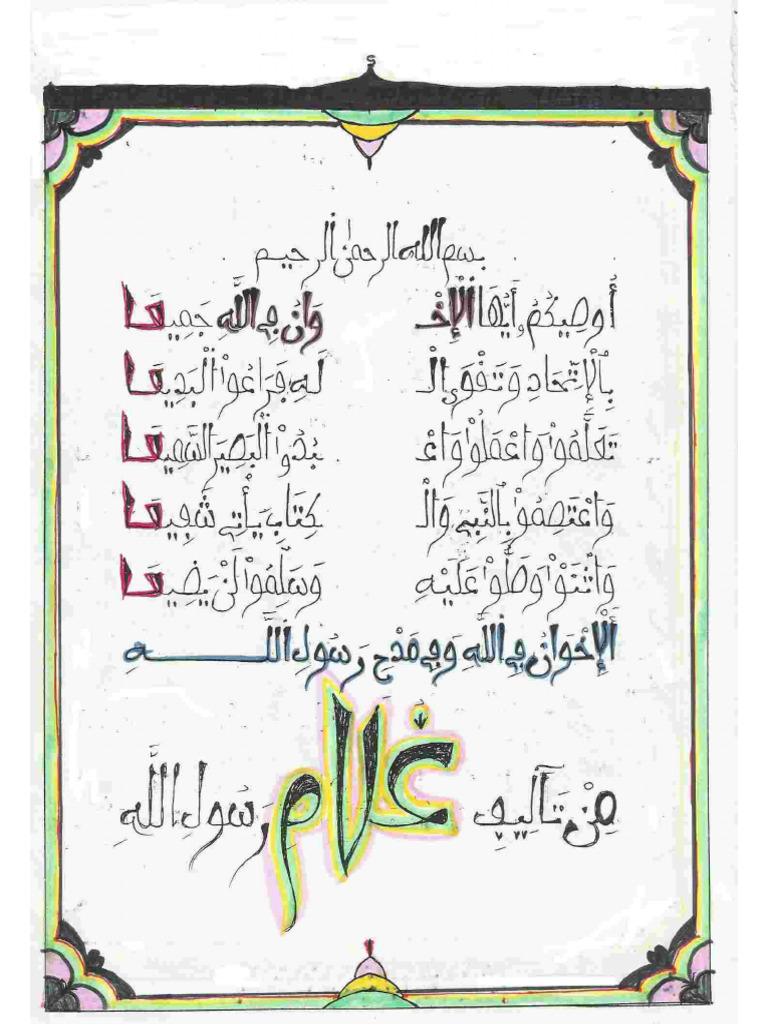 بسم الله الرحمن الرحيم
أُوصِيكُمُ أَيُّهَا الْإِخْـ وَانُ فِي اللَّهِ جَمِيعَا
بِالْإِتِّحَادِ وَتَقْوَى الْـ لَهِ فَرَاعُواْ الْبَدِيعَا
تَعَلَّمُواْ وَاعْمَلُواْ وَاعْـ بُدُواْ الْبَصِيرَ السَّمِيعَا
وَاعْتَصِمُواْ بِالنَّبِي وَالْـ كِتَابِ يَأْتِي شَفِيعَا
وَاثْنُواْ وَصَلُّواْ عَلَيْهِ وَسَلِّمُواْ لَنْ يَضِيعَا
أَلْإِخْوَانُ فِي اللَّهِ وَفِي مَدْحِ رَسُولِ اللَّهِ
مِنْ تَآلِيفِ غلام رَسُولِ اللَّهِ